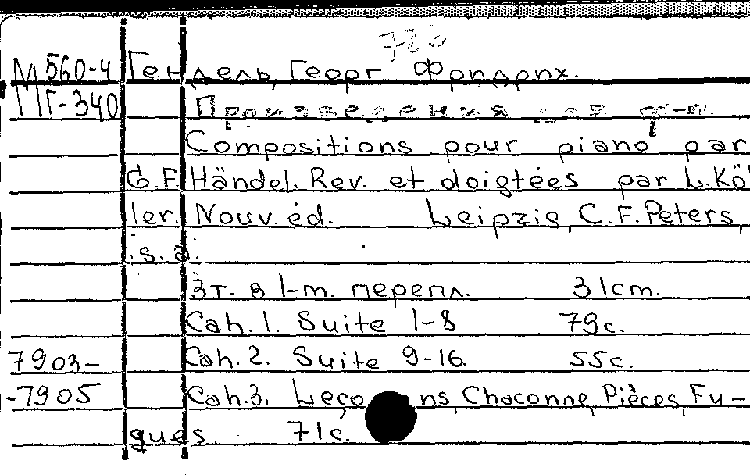 M 560-4 Гендель, Георг Фридрих.
МГ-340 Произведения для ф-п.
Compositions pour piano par
G.F. Händel. Rev. et doigtées par L. Kö
ler. Nouv. éd. Leipzig, C.F. Peters,
s.a.
3т. в 1-m. перепл. 31cm.
Cah. 1. Suite 1-8 79с.
7903- Cah. 2. Suite 9-16. 55с.
-7905 Cah. 3. Chaconne, Pièces, Fu-
gues. 71с.